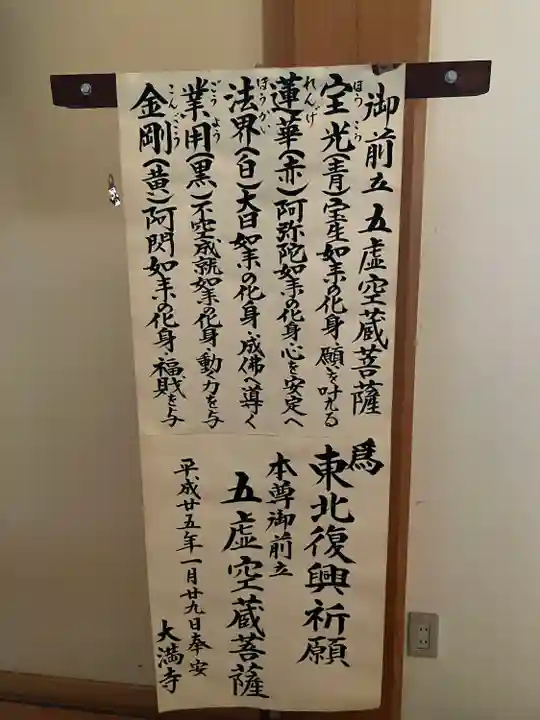 御前立 五虚空蔵菩薩
宝光(青)宝生如来の化身、願を叶える
ほうこう
蓮華(赤)阿弥陀如来の化身心を安定へ
れんげ
法界(白)大日如来の化身、成佛へ導く
ほうかい
業用(黒)不空成就如来の化身、動く力を与
ごうよう
金剛(黄)阿閦如来の化身、福財を与
こんごう
為
東北復興祈願
本尊御前立
五虚空蔵菩薩
平成廿五年一月廿九日奉安
大満寺